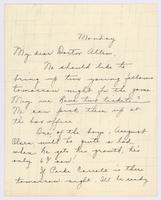 Monday
My dear Doctor Allen,
We should like to
bring up two young fellows
tomorrow night for the game
May we have two tickets.
We can pick them up at
the box office.
One of the boys, August
will be quite a lad,
when he gets his growth, his
only 6'4 now!
If Pack is there
tomorrow night I'll be ready